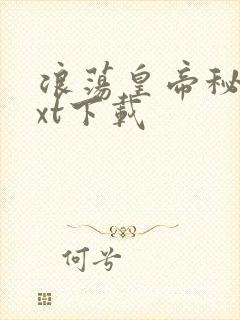 浪荡皇帝秘
xt下载
何兮